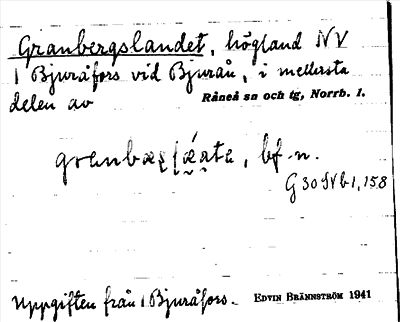 Granbergslandet, högland NV
1 Bjuråfors vid Bjurån, i mellersta
delen av
Råneå sn och tg, Norrb. l.
bf. n.
G 30 SV b 1, 158
Uppgiften från 1 Bjuråfors.
EDVIN BRÄNNSTRÖM 1941